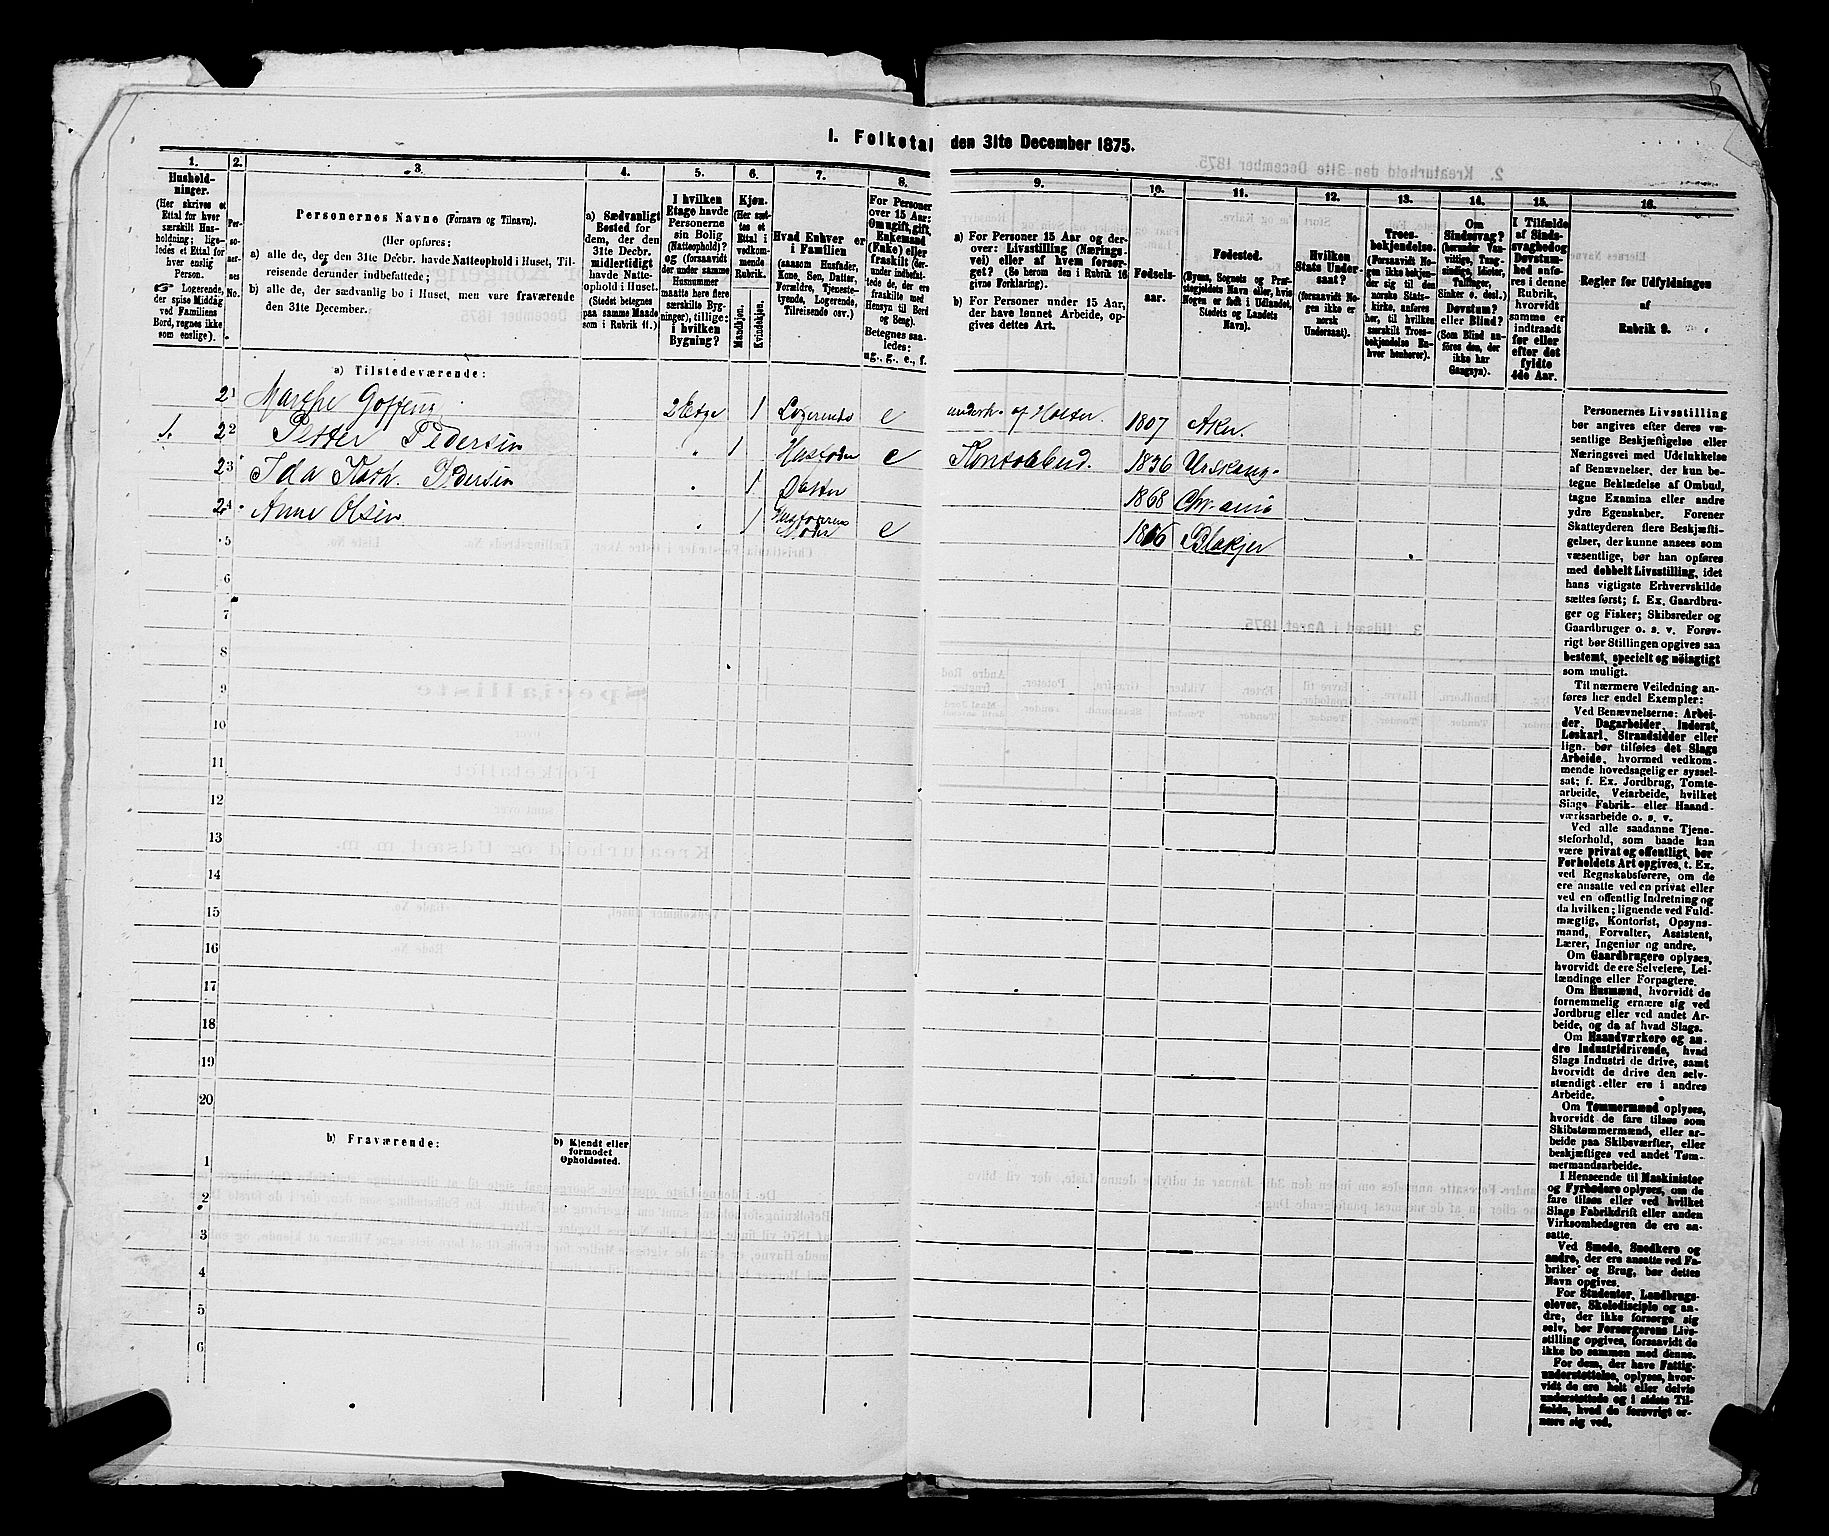 I. Folketal den 31te December 1875.
1. 2. 3. 4. 5. 6. 7. 8. 9. 10. 11. 12. 13. 14. 15. 16.
Hushold-
ninger.
(Her skrives et
Ettal for hver
særskilt Hus-
holdning; lige-
ledes et Ettal for
hver enslig
Person.
☞ Logerende,
der spise Middag
ved Familiens
Bord, regnes ikke
som enslige).
Per-
so-
ner-
nes
No.
Personernes Navne (Fornavn og Tilnavn).
(Her opføres:
a) alle de, der den 31te Decbr. havde Natteophold i Huset, Til-
reisende derunder indbefattede;
b) alle de, der sædvanlig bo i Huset, men vare fraværende
den 31te December.
a) Sædvanligt
Bosted for
dem, der den
31te Decbr.
midlertidigt
havde Natte-
ophold i Huset.
(Stedet betegnes
paa samme Maade
som i Rubrik 11.)
I hvilken
Etage havde
Personerne
sin Bolig
(Natteophold)?
og (forsaavidt
der under samme
Husnummer
maatte høre flere
særskilte Byg-
ninger), tillige:
i hvilken
Bygning?
Kjøn.
(Her sæt-
tes et
Ettal i
vedkom-
mende
Rubrik.
Mandkjøn.
Kvindekjøn.
Hvad Enhver er
i Familien
(saasom Husfader,
Kone, Søn, Datter,
Forældre, Tjeneste-
tyende, Logerende,
Tilreisende osv.)
For Personer
over 15 Aar:
Om ugift, gift,
Enkemand
(Enke) eller
fraskilt (her-
under indbefat-
tede de, der ere
fraskilte med
Hensyn til Bord
og Seng).
Betegnes saa-
ledes:
ug., g., e., f.
a) For Personer 15 Aar og der-
over: Livsstilling (Nærings-
vei) eller af hvem forsør-
get? (Se herom den i Rubrik 16
givne Forklaring).
b) For Personer under 15 Aar,
der have lønnet Arbeide, op-
gives dettes Art.
Fødsels-
aar.
Fødested.
(Byens, Sognets og Præ-
stegjeldets Navn eller, hvis
Nogen er født i Udlandet,
Stedets og Landets
Navn).
Hvilken
Stats Under-
saat?
(forsaavidt No-
gen ikke er
norsk
Undersaat).
Troes-
bekjendelse.
(Forsaavidt No-
gen ikke bekjen-
der sig til den
norske Stats-
kirke, anføres
her, til hvilken
særskilt Troes-
bekjendelse En-
hver henhører).
Om
Sindssvag?
(herunder Van-
vittige, Tung-
sindige, Idioter,
Tullinger,
Sinker o. desl.)
Døvstum?
eller Blind?
(Som Blind an-
føres den, der
ikke har
Gangsyn).
I Tilfælde
af Sinds-
svaghed og
Døvstum-
hed anfø-
res i denne
Rubrik,
hvorvidt
samme er
indtraadt
før eller
efter det
fyldte
4de Aar.
Regler for Udfyldningen
af
Rubrik 9.
a) Tilstedeværende:
21 Marthe 2 Etge 1 Logerende e underh. af Holter. 1807 Aker.
1. 22 Petter Pedersen " 1 Husfader e Kontorbud. 1836 Urskoug.
23 Ida Kath. Pedersen " 1 Datter 1868 Chr.ania
24 Anne Olsen " 1 Husfaderens
Moder e Blakjer
5
6
7
8
9
10
11
12
13
14
15
16
17
18
19
20
b) Fraværende:
b) Kjendt eller
formodet
Opholdssted.
1
2
3
4
5
6
Personernes Livsstilling
bør angives efter deres væ-
sentlige Beskjæftigelse eller
Næringsvei med Udelukkelse
af Benævnelser, der kun be-
tegne Beklædelse af Ombud,
tagne Examina eller andre
ydre Egenskaber. Forener
Skatteyderen flere Beskjæfti-
gelser, der kunne ansees som
væsentlige, bør han opføres
med dobbelt Livsstilling, idet
hans vigtigste Erhvervskilde
sættes først; f. Ex. Gaardbru-
ger og Fisker; Skibsreder og
Gaardbruger o. s. v. Forøv-
rigt bør Stillingen opgives saa
bestemt, specielt og nöiagtigt
som muligt.
Til nærmere Veiledning an-
føres her endel Exempler:
Ved Benævnelserne: Arbei-
der, Dagarbeider, Inderst,
Løskarl, Strandsidder eller
lign. bør tilføies det Slags
Arbeide, hvormed vedkom-
mende hovedsagelig er syssel-
sat; f. Ex. Jordbrug, Tomte-
arbeide, Veiarbeide, hvilket
Slags Fabrik- eller Haand-
værksarbeide o. s. v.
Ved alle saadanne Tjene-
steforhold, som baade kan
være privat og offentligt, bør
Forholdets Art opgives, t. Ex.
ved Regnskabsførere, om de
ere ansatte ved en privat eller
ved en offentlig Indretning og
da hvilken; lignende ved Fuld-
mægtig, Kontorist, Opsyns-
mand, Forvalter, Assistent,
Lærer, Ingeniør og andre.
Om Gaardbrugere oplyses,
hvorvidt de ere Selveiere, Lei-
lændinge eller Forpagtere.
Om Husmænd, hvorvidt de
fornemmelig ernære sig ved
Jordbrug eller ved andet Ar-
beide, og da af hvad Slags.
Om Haandværkere og an-
dre Industridrivende, hvad
Slags Industri de drive, samt
hvorvidt de drive den selv-
stændigt eller ere i andres
Arbeide.
Om Tømmermænd oplyses,
hvorvidt de fare tilsøs som
Skibstømmermænd, eller ar-
beide paa Skibsværfter, eller
beskjæftiges ved andet Tøm-
mermandsarbeide.
I Henseende til Maskinister
og Fyrbødere oplyses, om de
fare tilsøs eller ved hvilket
Slags Fabrikdrift eller anden
Virksomhedsgren de ere an-
satte.
Ved Smede, Snedkere og
andre, der ere ansatte ved Fa-
briker og Brug, bør dettes
Navn opgives.
For Studenter, Landbrugs-
elever, Skoledisciple og an-
dre, der ikke forsørge sig
selv, bør Forsørgerens Livs-
stilling opgives, forsaavidt de
ikke bo sammen med denne.
For dem, der have Fattig-
understøttelse, oplyses, hvor-
vidt de ere helt eller delvis
understøttede og i sidste Til-
fælde, hvad de forøvrigt er-
nære sig ved.